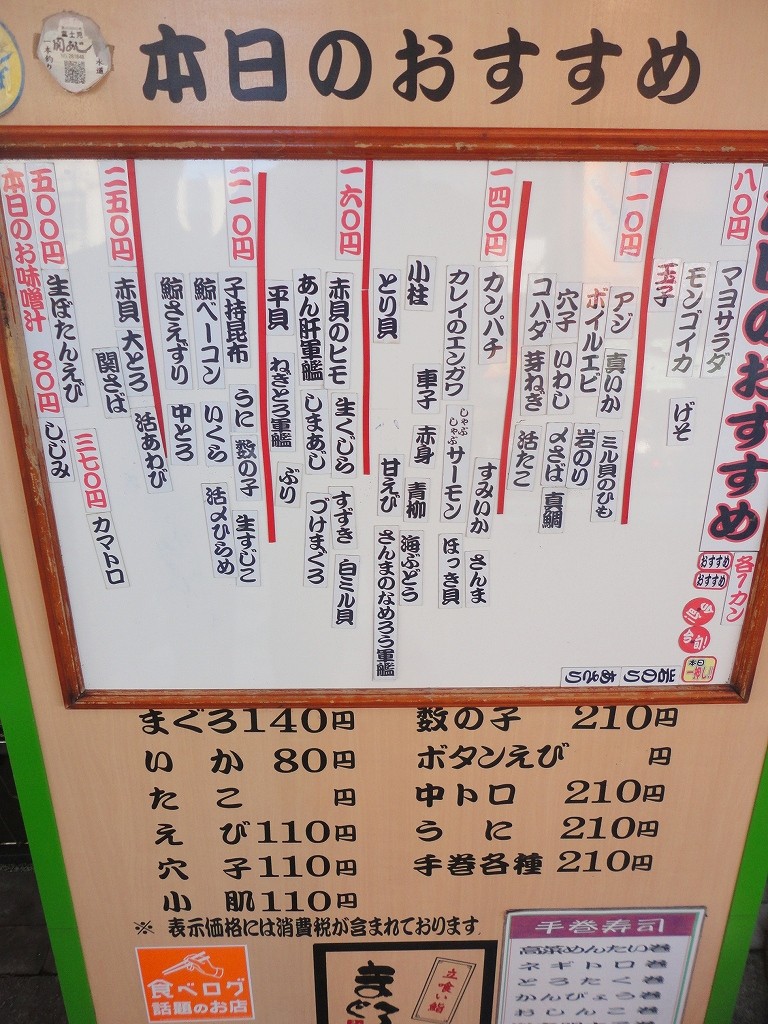 本日のおすすめ
関あじ
一本釣り
のおすすめ
各1カン
おすすめ
おすすめ
今旬!
今旬!
本日
一押し!!
八〇円
マヨサラダ
モンゴイカ げそ
玉子
一一〇円
アジ 真いか ミル貝のひも
ボイルエビ 岩のり
穴子 いわし 〆さば 真鯛
コハダ 芽ねぎ 活たこ
一四〇円
カンパチ すみいか さんま
カレイのエンガワ しゃぶしゃぶサーモン ほっき貝
小柱 車子 赤身 青柳 海ぶどう
とり貝 甘えび さんまのなめろう軍艦
一六〇円
赤貝のヒモ 生くじら すずき 白ミル貝
あん肝軍艦 しまあじ づけまぐろ
平貝 ねぎとろ軍艦 ぶり
二一〇円
子持昆布 うに 数の子 生すじこ
鯨ベーコン いくら 活〆ひらめ
鯨さえずり 中とろ
二五〇円
赤貝 大とろ 活あわび
関さば
三七〇円 カマトロ
五〇〇円 生ぼたんえび
本日のお味噌汁 80円 しじみ
まぐろ140円
いか 80円
たこ 円
えび110円
穴子110円
小肌110円
数の子 210円
ボタンえび 円
中トロ 210円
うに 210円
手巻各種 210円
※ 表示価格には消費税が含まれております
食べログ
話題のお店
立喰い鮨
まぐ
手巻寿司
高菜めんたい巻
ネギトロ巻
とろたく巻
かんぴょう巻
おしんこ巻